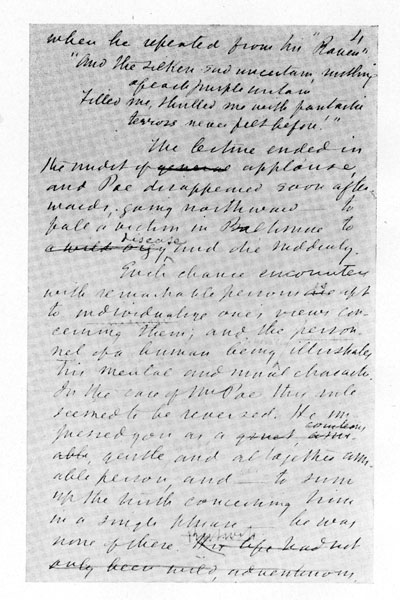 4
when he repeated from his "Raven"
"And the silken sad uncertain rustling
of each purple curtain
Filled me, thrilled me with fantastic
terrors never felt before!"
The lecture ended in
the midst of general applause,
and Poe disappeared soon after-
wards, going northward to
fall a victim in Baltimore to
a wild orgy disease, and die suddenly.
Such chance encounters
with remarkable persons are apt
to individualize one's views con-
cerning them; and the person-
nel of a human being illustrates
his mental and moral character.
In the case of Mr Poe this rule
seemed to be reversed. He im-
pressed you as a quiet, courteous
gentle and altogether ami-
able person, and — to sum
up the truth concerning him
in a single phrase — he was
none of these. His life had not
only been wild, adventurous